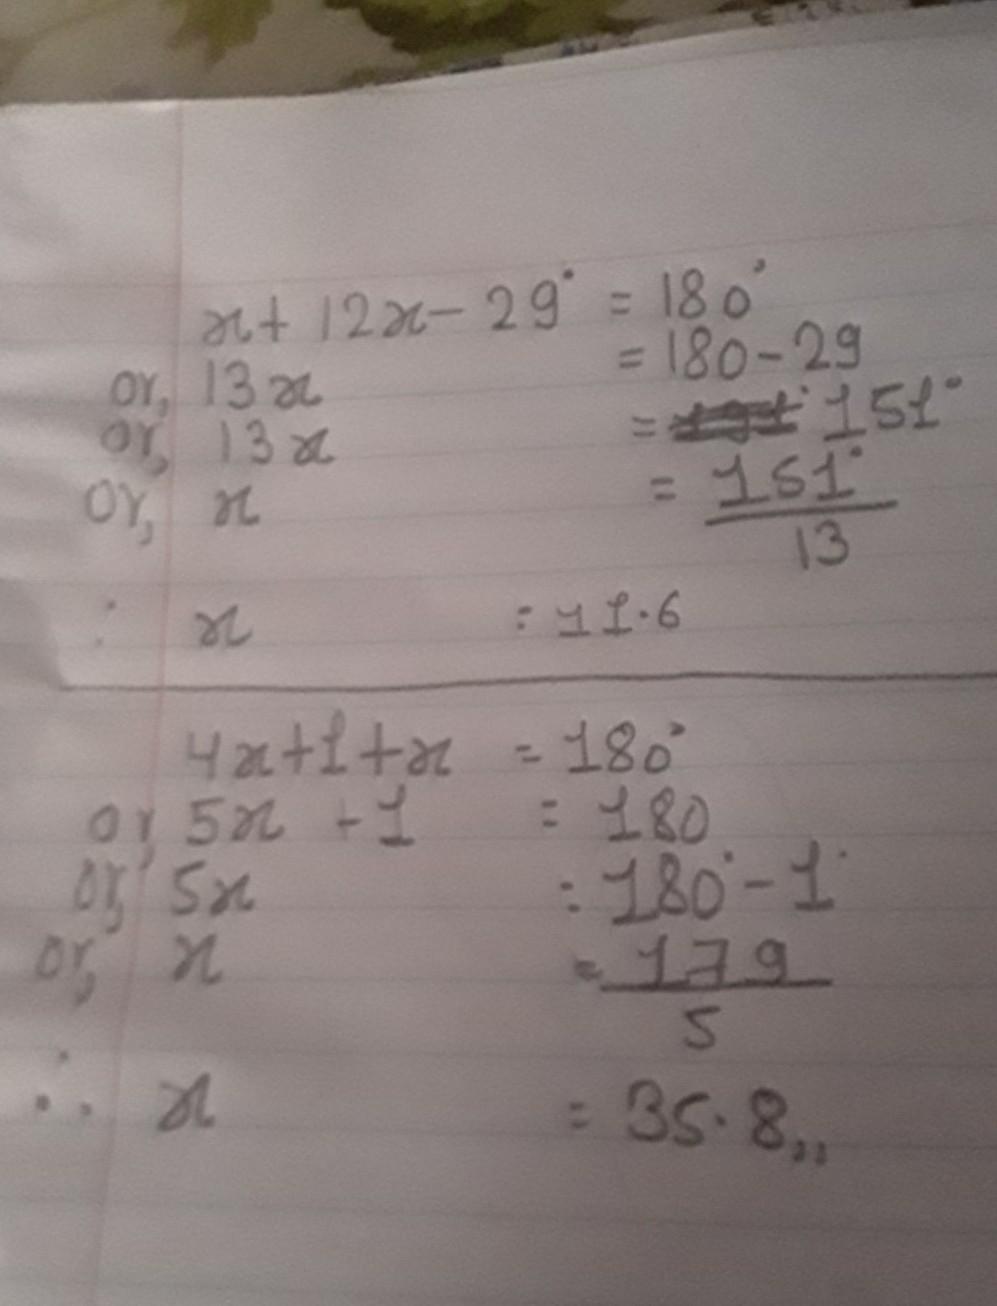 x + 12x - 29° = 180°
or, 13x = 180 - 29
or, 13x = 151°
or, x = 151° / 13
∴ x = 11.6
4x + 1 + x = 180°
or, 5x + 1 = 180
or, 5x = 180° - 1°
or, x = 179 / 5
∴ x = 35.8,,